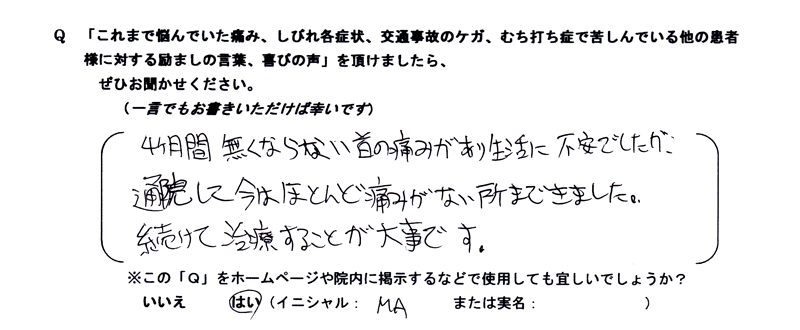 Q 「これまで悩んでいた痛み、しびれ各症状、交通事故のケガ、むち打ち症で苦しんでいる他の患者
様に対する励ましの言葉、喜びの声」を頂けましたら、
ぜひお聞かせください。
（一言でもお書きいただけば幸いです）
4ヶ月間 無くならない首の痛みがあり生活に不安でしたが、
通院して今はほとんど痛みがない所まできました。
続けて治療することが大事です。
※この「Q」をホームページや院内に掲示するなどで使用しても宜しいでしょうか？
いいえ はい（イニシャル： MA または実名： ）